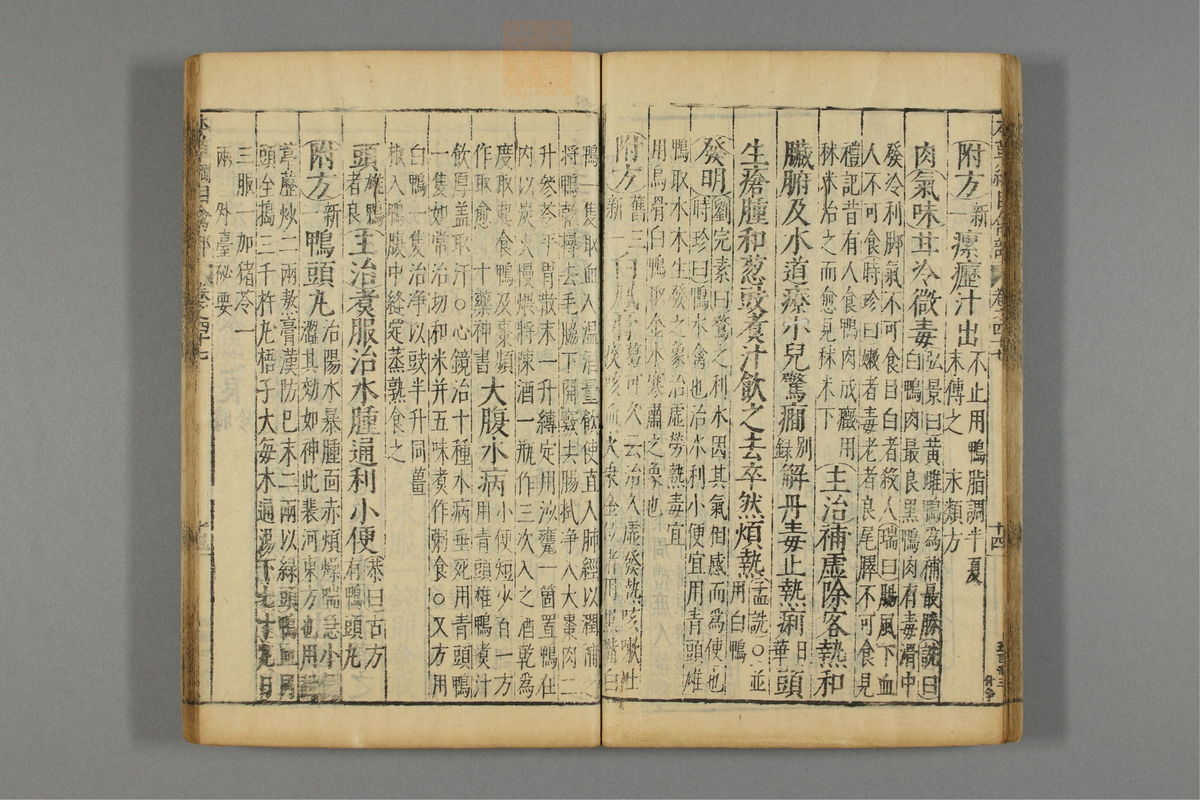 附方新一瘰癧汁出不止用鴨脂調半夏末傅之 永類方
肉氣味甘冷微毒弘景曰黃雌鴨為補最勝詵曰白鴨肉最良黑鴨肉有毒滑中
發冷利腳氣不可食目白者殺人瑞曰腸風下血
人不可食時珍曰嫩者毒老者良尾臎不可食見
禮記昔有人食鴨肉成癥用秫米治之而愈見秫米下 主治補虛除客熱和
臟腑及水道療小兒驚癇別錄解丹毒止熱痢日華頭
生瘡腫和葱豉煮汁飲之去卒然煩熱孟詵○並用白鴨
發明時珍曰鴨水禽也治水利小便宜用青頭雄
劉完素曰鶩之利水因其氣相感而為使也
鴨取水木生發之象治虛勞熱毒宜
用烏骨白鴨取金水寒肅之象也
附方舊三新一白鳳膏葛可久云治久虛發熱咳嗽吐
痰咳血火乘金位者用黑嘴白
鴨一隻取血入溫酒量飲使直入肺經以潤補之
將鴨乾撏去毛脇下開竅去腸拭淨入大棗肉二
升參苓平胃散末一升縛定用沙甕一箇置鴨在
內以炭火慢煨將陳酒一瓶作三次入之酒乾為
度取起食鴨及棗頻作取愈 十藥神書 大腹水病小便短少百一方用青頭雄鴨煮汁
飲厚蓋取汗○心鏡治十種水病垂死用青頭鴨
一隻如常治切和米并五味煮作粥食○又方用
白鴨一隻治淨以豉半升同薑
椒入鴨腹中縫定蒸熟食之
頭雄鴨者良主治煮服治水腫通利小便恭曰古方有鴨頭丸
附方新一鴨頭丸治陽水暴腫面赤煩燥喘急小
澀其効如神此裴河東方也用甜
葶藶炒二兩熬膏漢防巳末二兩以綠頭鴨血同
頭全搗三千杵丸梧子大每木通湯下七十丸日
三服一加猪苓一
兩 外臺秘要